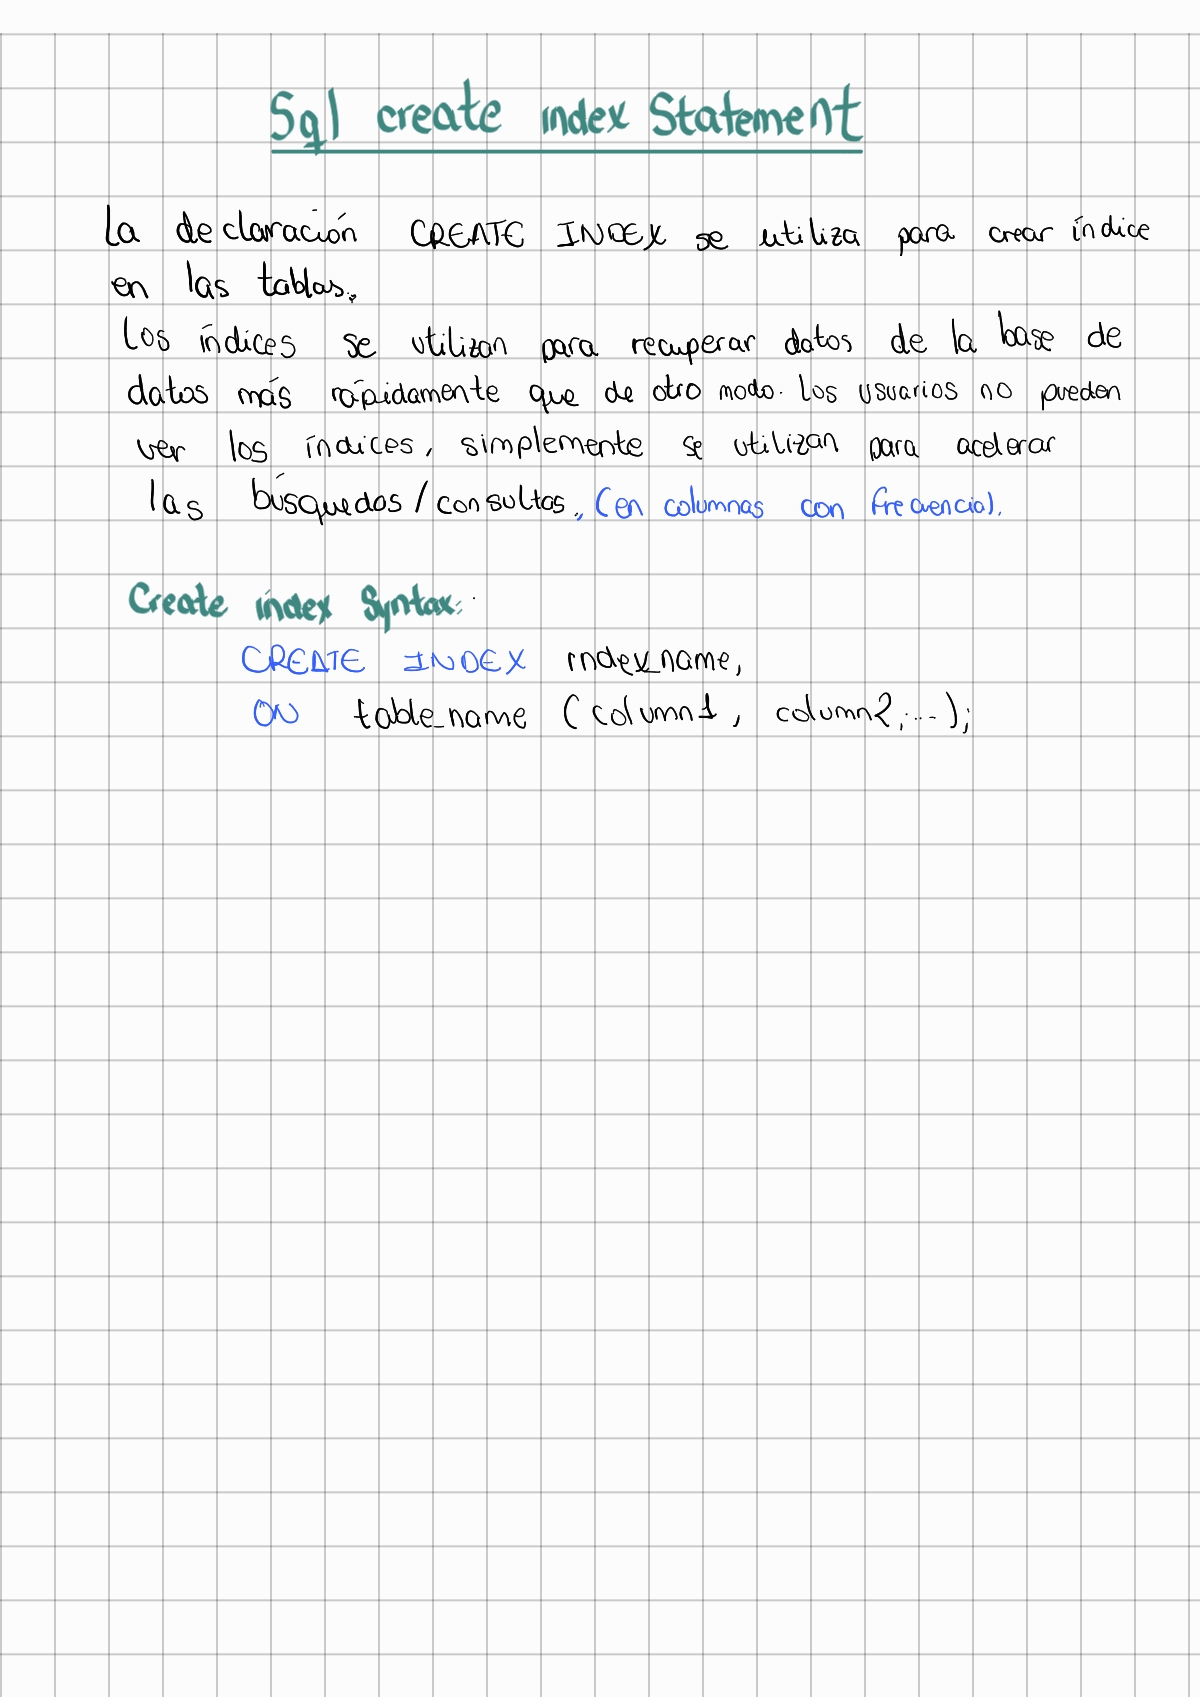 Sql create index Statement
La declaración CREATE INDEX se utiliza para crear índice
en las tablas.
Los índices se utilizan para recuperar datos de la base de
datos más rápidamente que de otro modo. Los usuarios no pueden
ver los índices, simplemente se utilizan para acelerar
las búsquedas/consultas, (en columnas con frecuencia).
Create index Syntax:
CREATE INDEX index_name,
ON table_name (column1, column2,...);